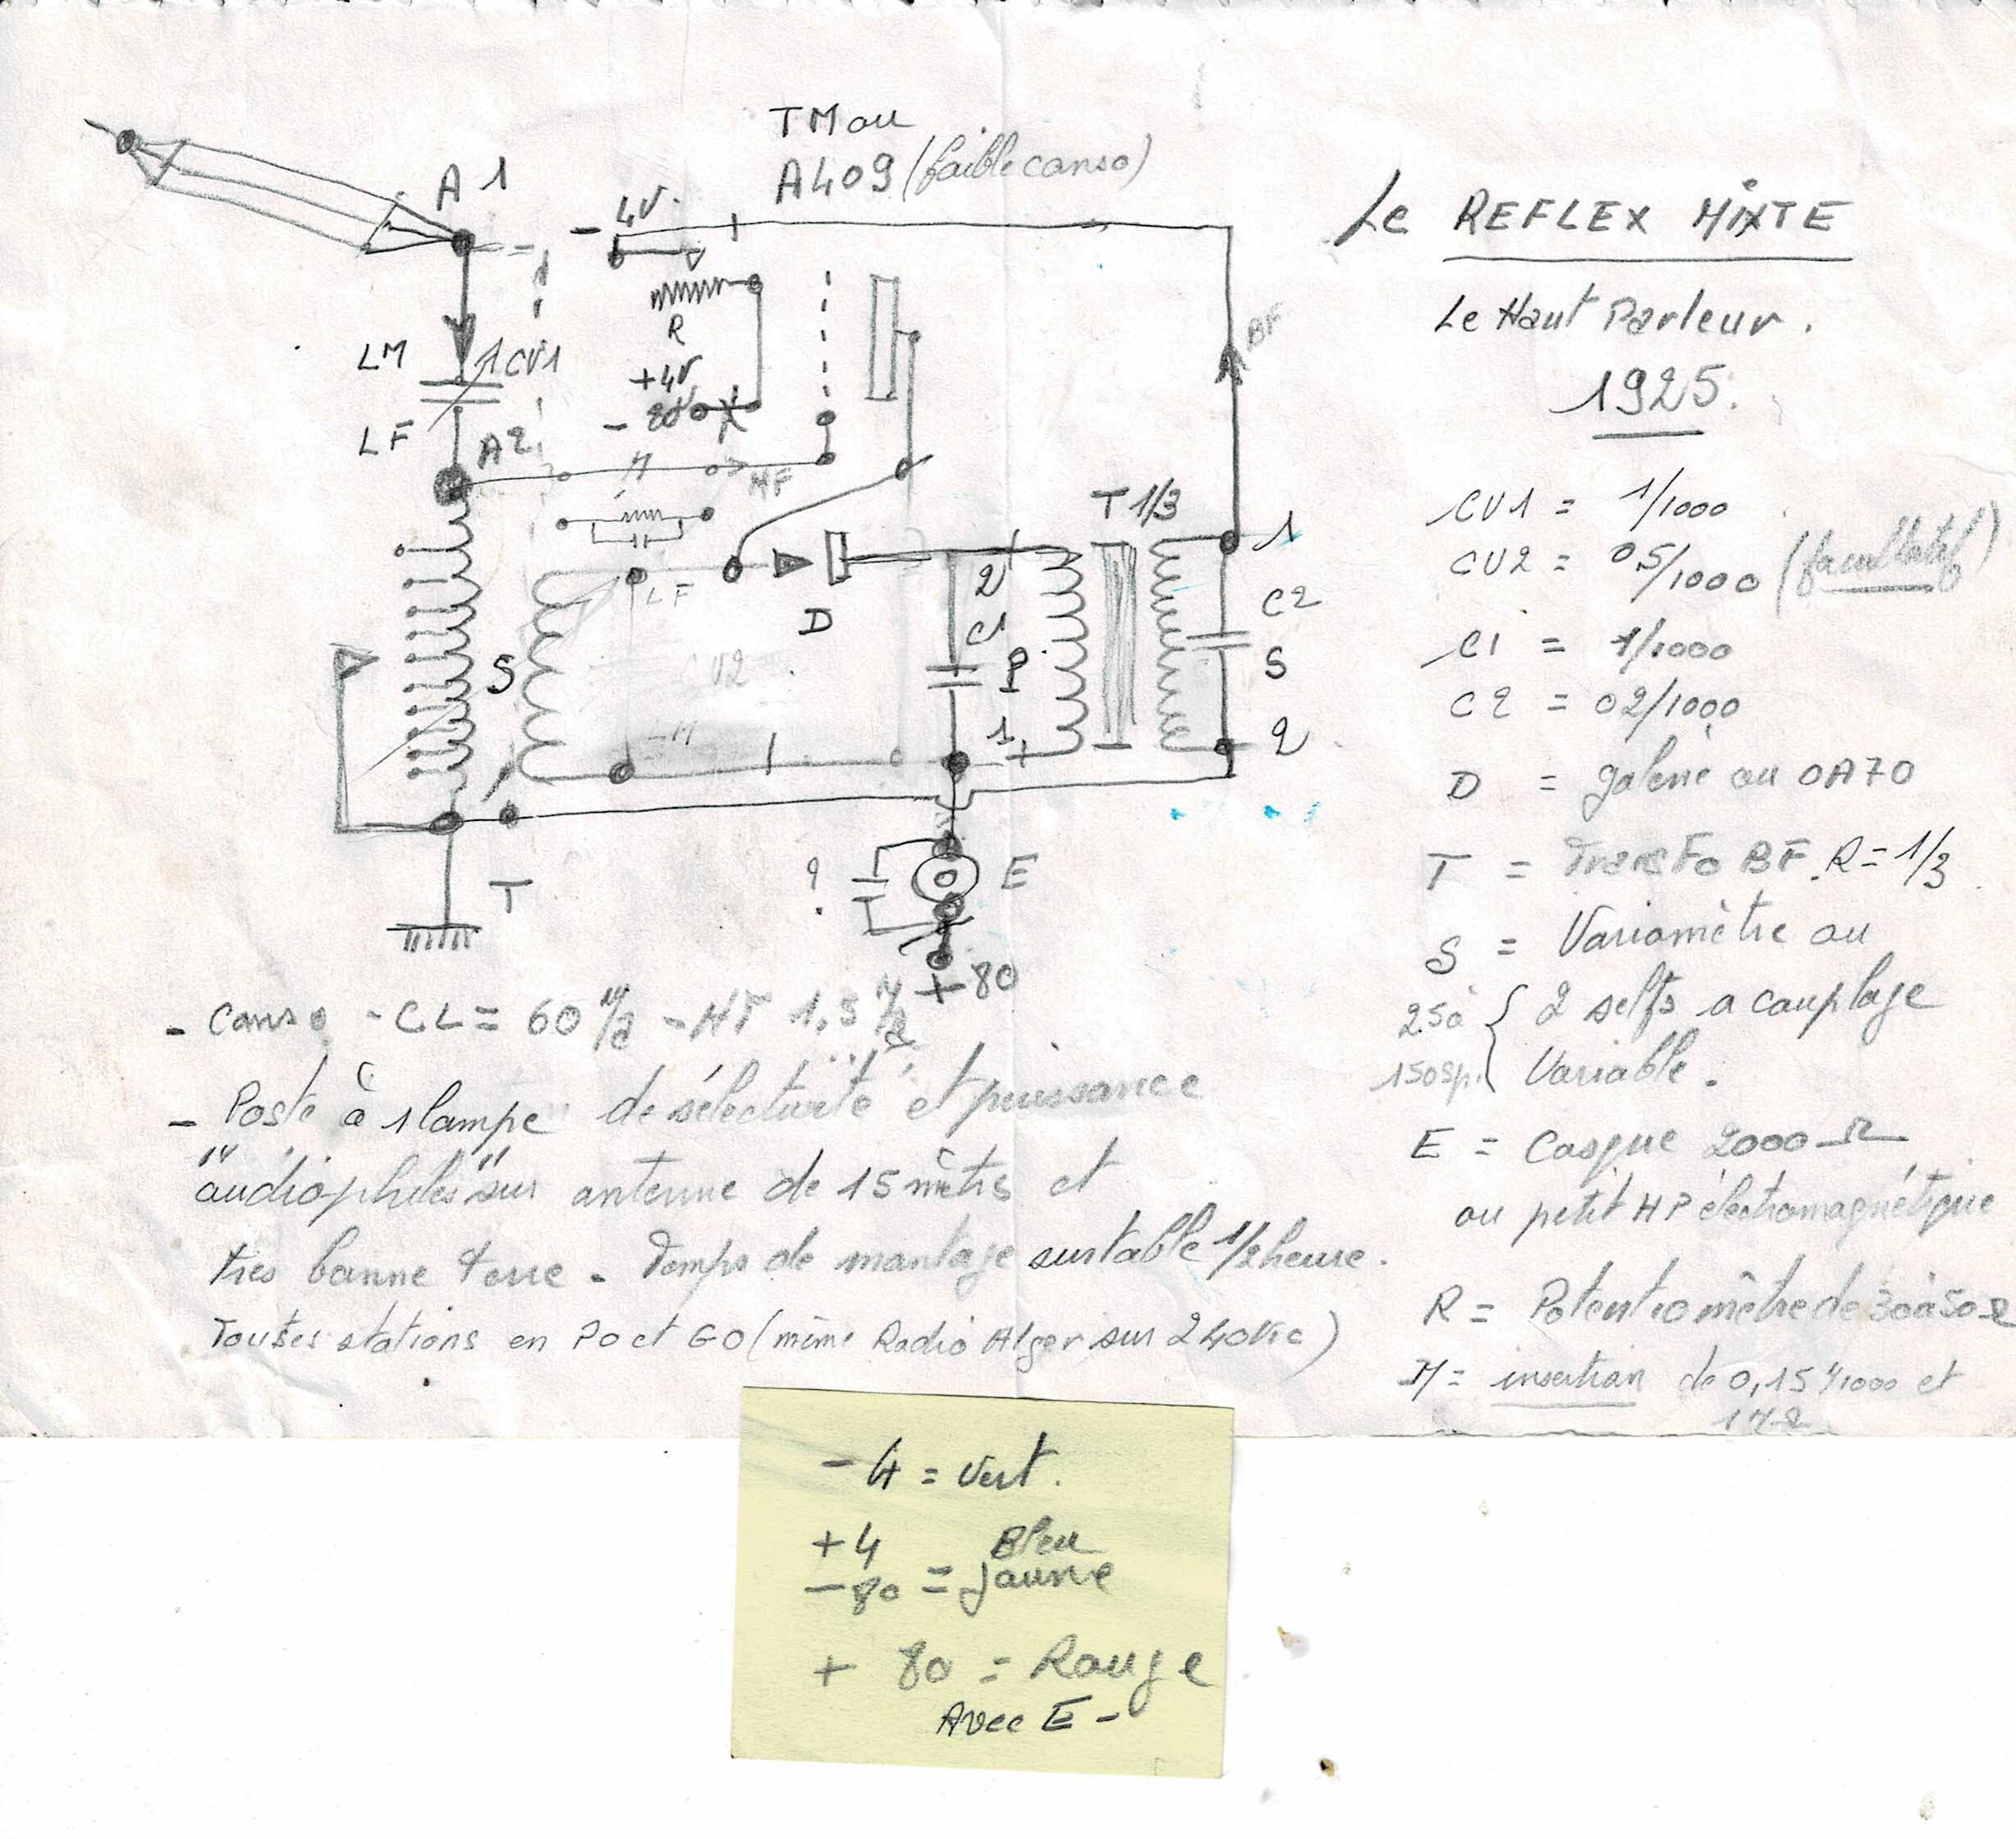 TM ou
A409 (faible conso)
A1
- 4V.
LM
CV1
R
+4V
- 80V
LF
A2
M
HF
LF
S
CV2
D
2
C1
P
1
T 1/3
BF
1
C2
S
2
T
?
E
+ 80
Le REFLEX MIXTE
Le Haut Parleur.
1925.
CV1 = 1/1000
CV2 = 05/1000 (facultatif)
C1 = 1/1000
C2 = 02/1000
D = galene ou OA70
T = Transfo BF. R = 1/3
S = Variomètre ou
25 à { 2 selfs a couplage
150sp. Variable.
E = Casque 2000 Ω
ou petit HP électromagnétique
R = Potentiomètre de 30 à 50 Ω
M = insertion de 0,15/1000 et
- Conso - CL = 60 - HT 1,5
- Poste à 1 lampe de sélectivité et puissance
"audiophiles" sur antenne de 15 mètrs et
tres bonne terre - Temps de montage sur table 1/2 heure.
Toutes stations en PO et GO (même Radio Alger sur
- 4 = Vert.
+4 Bleu
- 80 = Jaune
+ 80 = Rouge
Avec E -